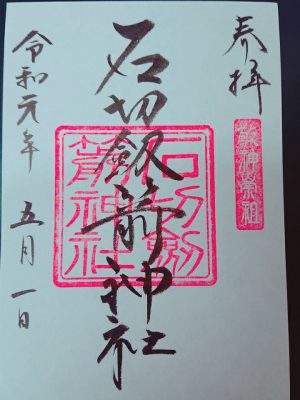 奉拝
石切劔箭神社
石切劔箭神社
令和元年 五月一日